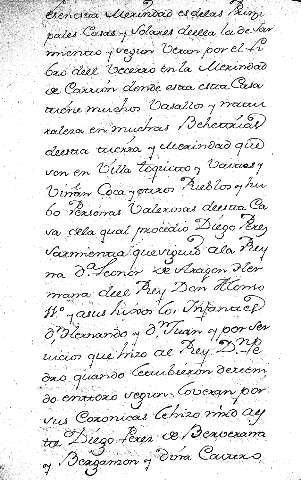 en esta Merindad es delas Prinzi
pales Casas y Solares deella la de Sar
miento y segun Veran por el li
bro deel Vecerro en la Merindad
de Carrion donde esta esta Casa
tiene muchos Vasallos y natu
raleza en muchas Behetrias
deesta tierra y Merindad que
son en Villa y
Coca y otros Pueblos y hu
bo Personas Valerosas deesta Ca
sa dela qual procedio Diego Perez
Sarmiento que siguio ala Rey
na Dª Leonor de Aragon Her
mana deel Rey Don Alonso
y asus hijos los Infantes
dn Hernando y dn Juan y por ser
uicios que hizo al Rey Dn Pe
dro quando le tubieron deteni
do en toro segun loveran por
sus Coronicas le hizo mrd aes
te Diego Perez de Berverana
y Bergamon y